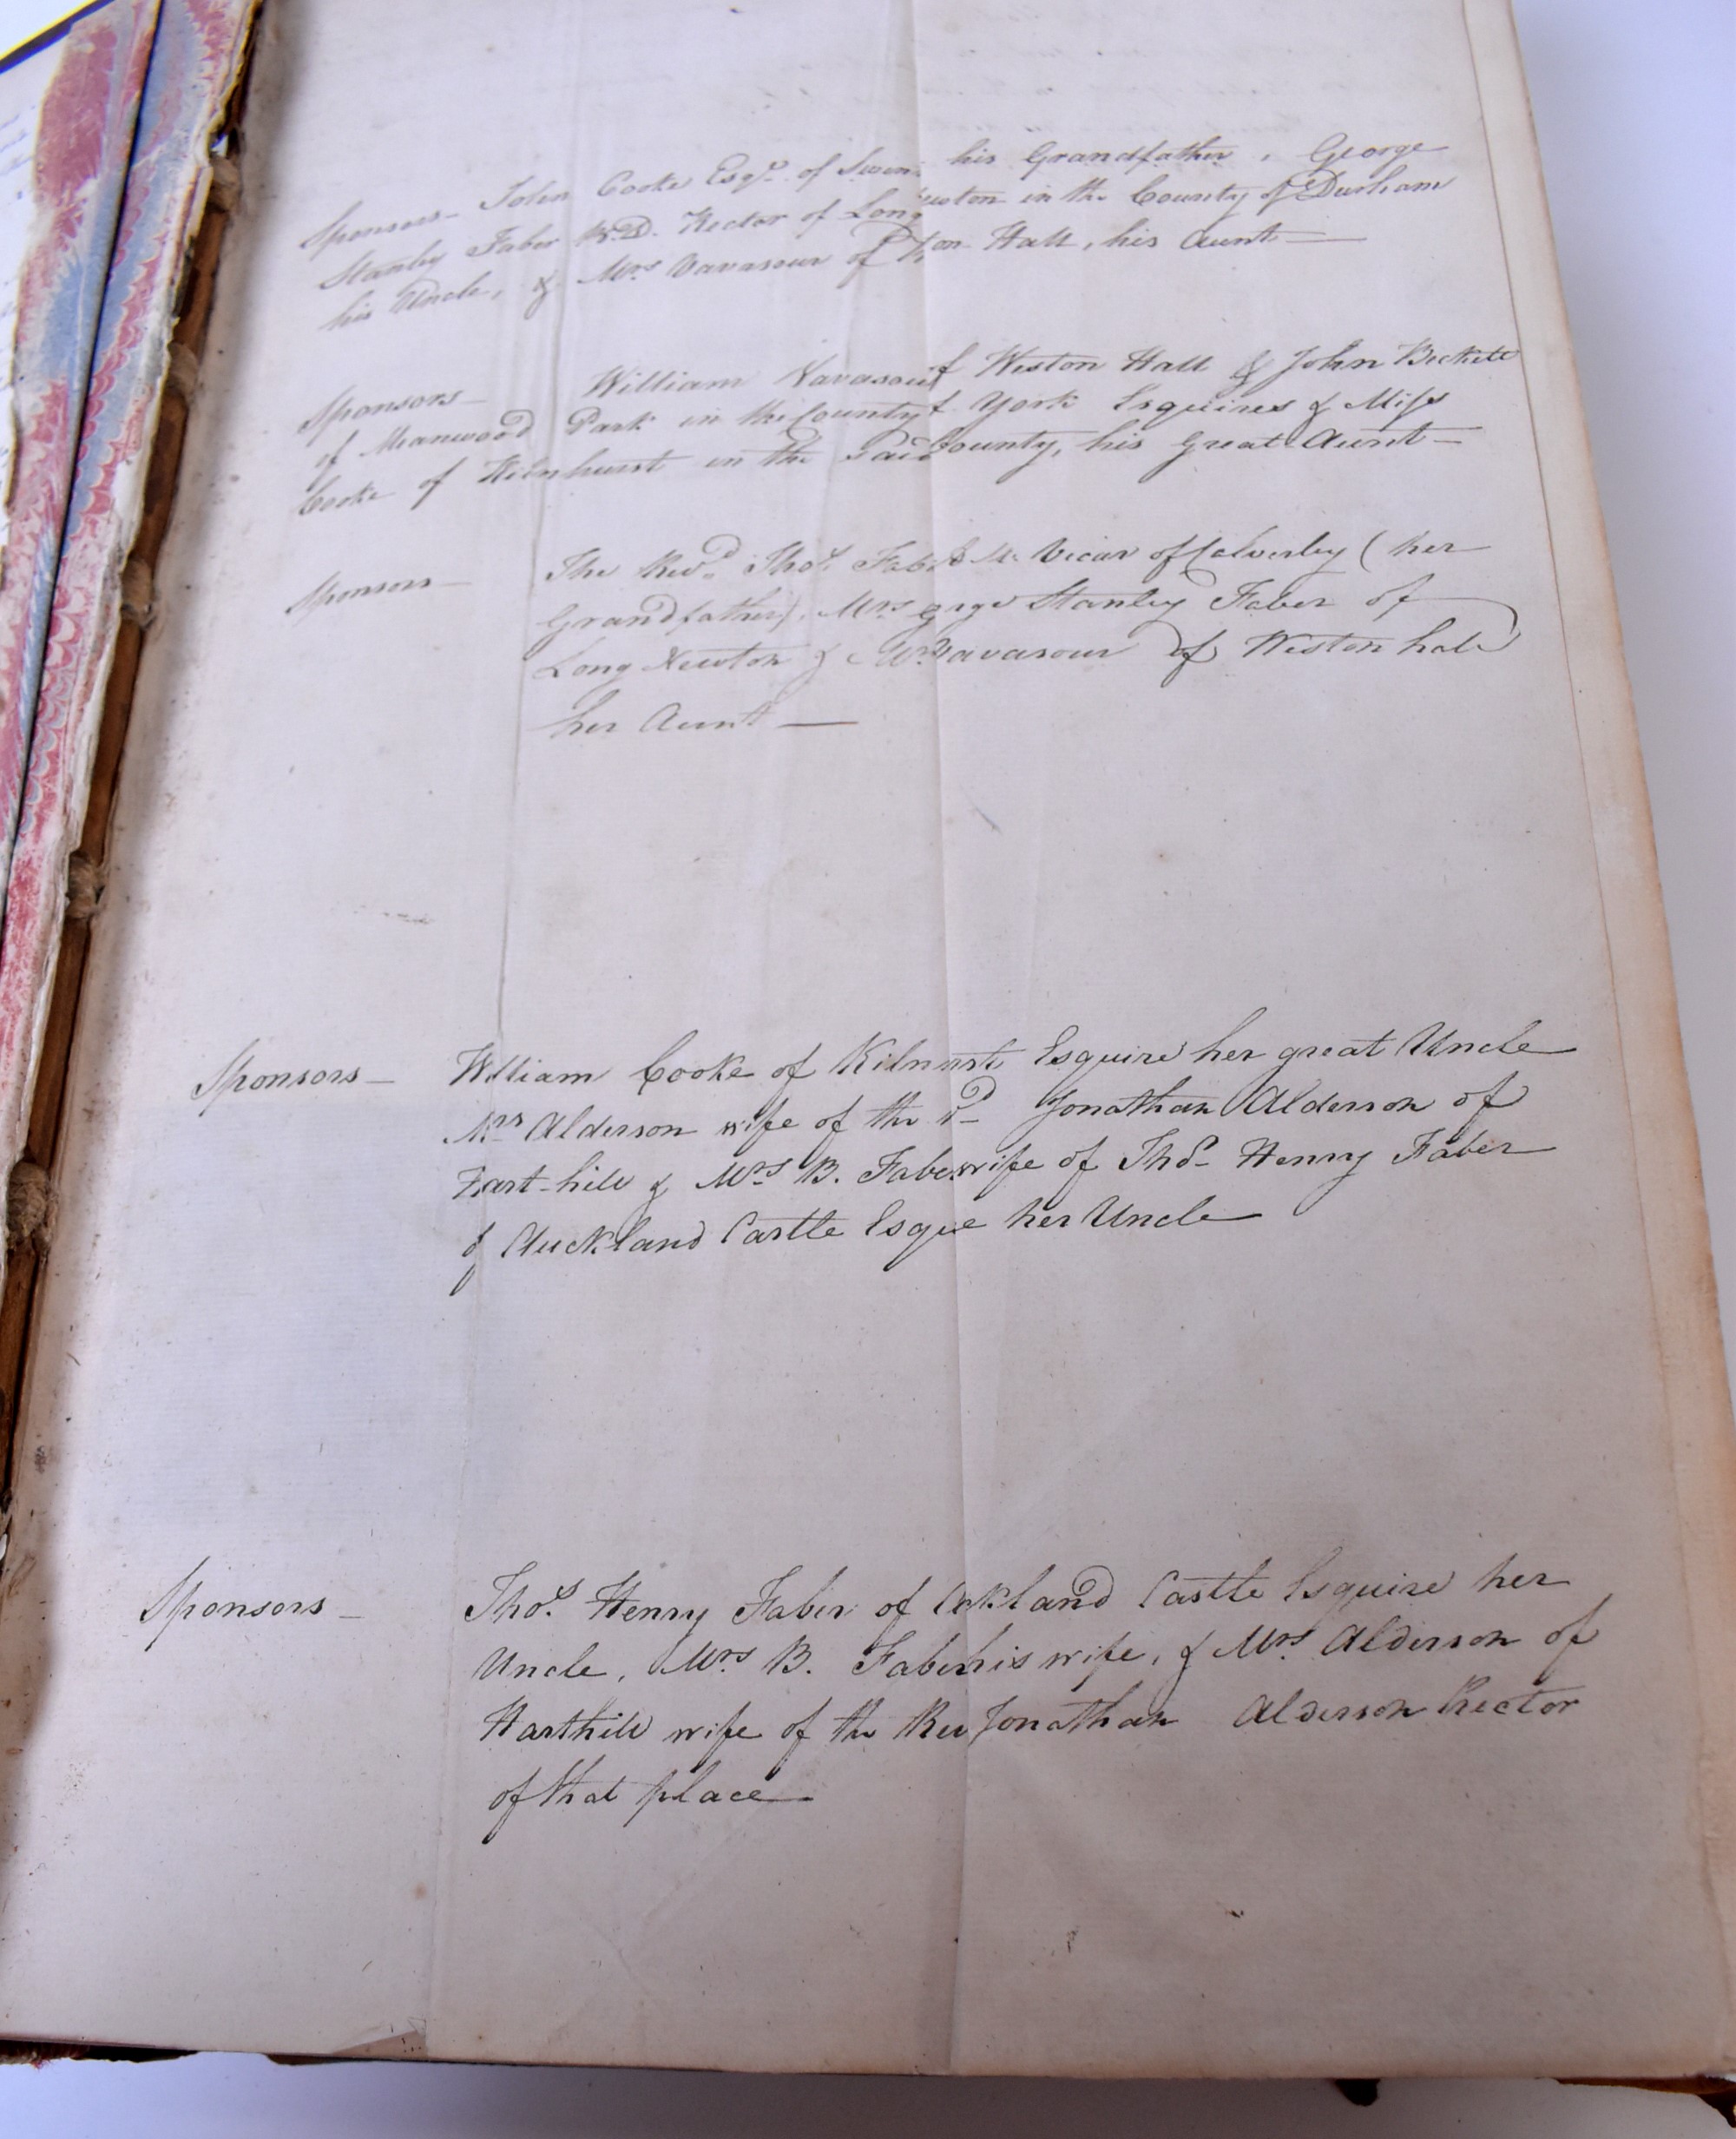 Sponsors – John Cooke Esqr. of Swin his Grandfather, George
Stanley Faber B.D. Rector of Long newton in the County of Durham
his Uncle, & Mrs Vavasour of ton Hall, his Aunt —
Sponsors – William Vavasour of Weston Hall & John Beckett
of Meanwood Park in the County of York Esquires & Miss
Cooke of Kilnhurst in the said County, his Great Aunt –
Sponsors – The Revd. Thos. Fab Vicar of Calverley (her
Grandfather), Mrs. Stanley Faber of
Long Newton & Mrs Vavasour of Weston hall
her Aunt —
Sponsors – William Cooke of Esquire her great Uncle
Mrs Alderson wife of the Jonathan Alderson of
Hart-hill & Mrs B. Faber wife of Thos. Henry Faber
of Auckland Castle Esque her Uncle —
Sponsors – Thos. Henry Faber of ckland Castle Esquire her
Uncle, Mrs. B. Faber his wife, & Mrs. Alderson of
Harthill wife of the Rev Jonathan Alderson Rector
of that place —